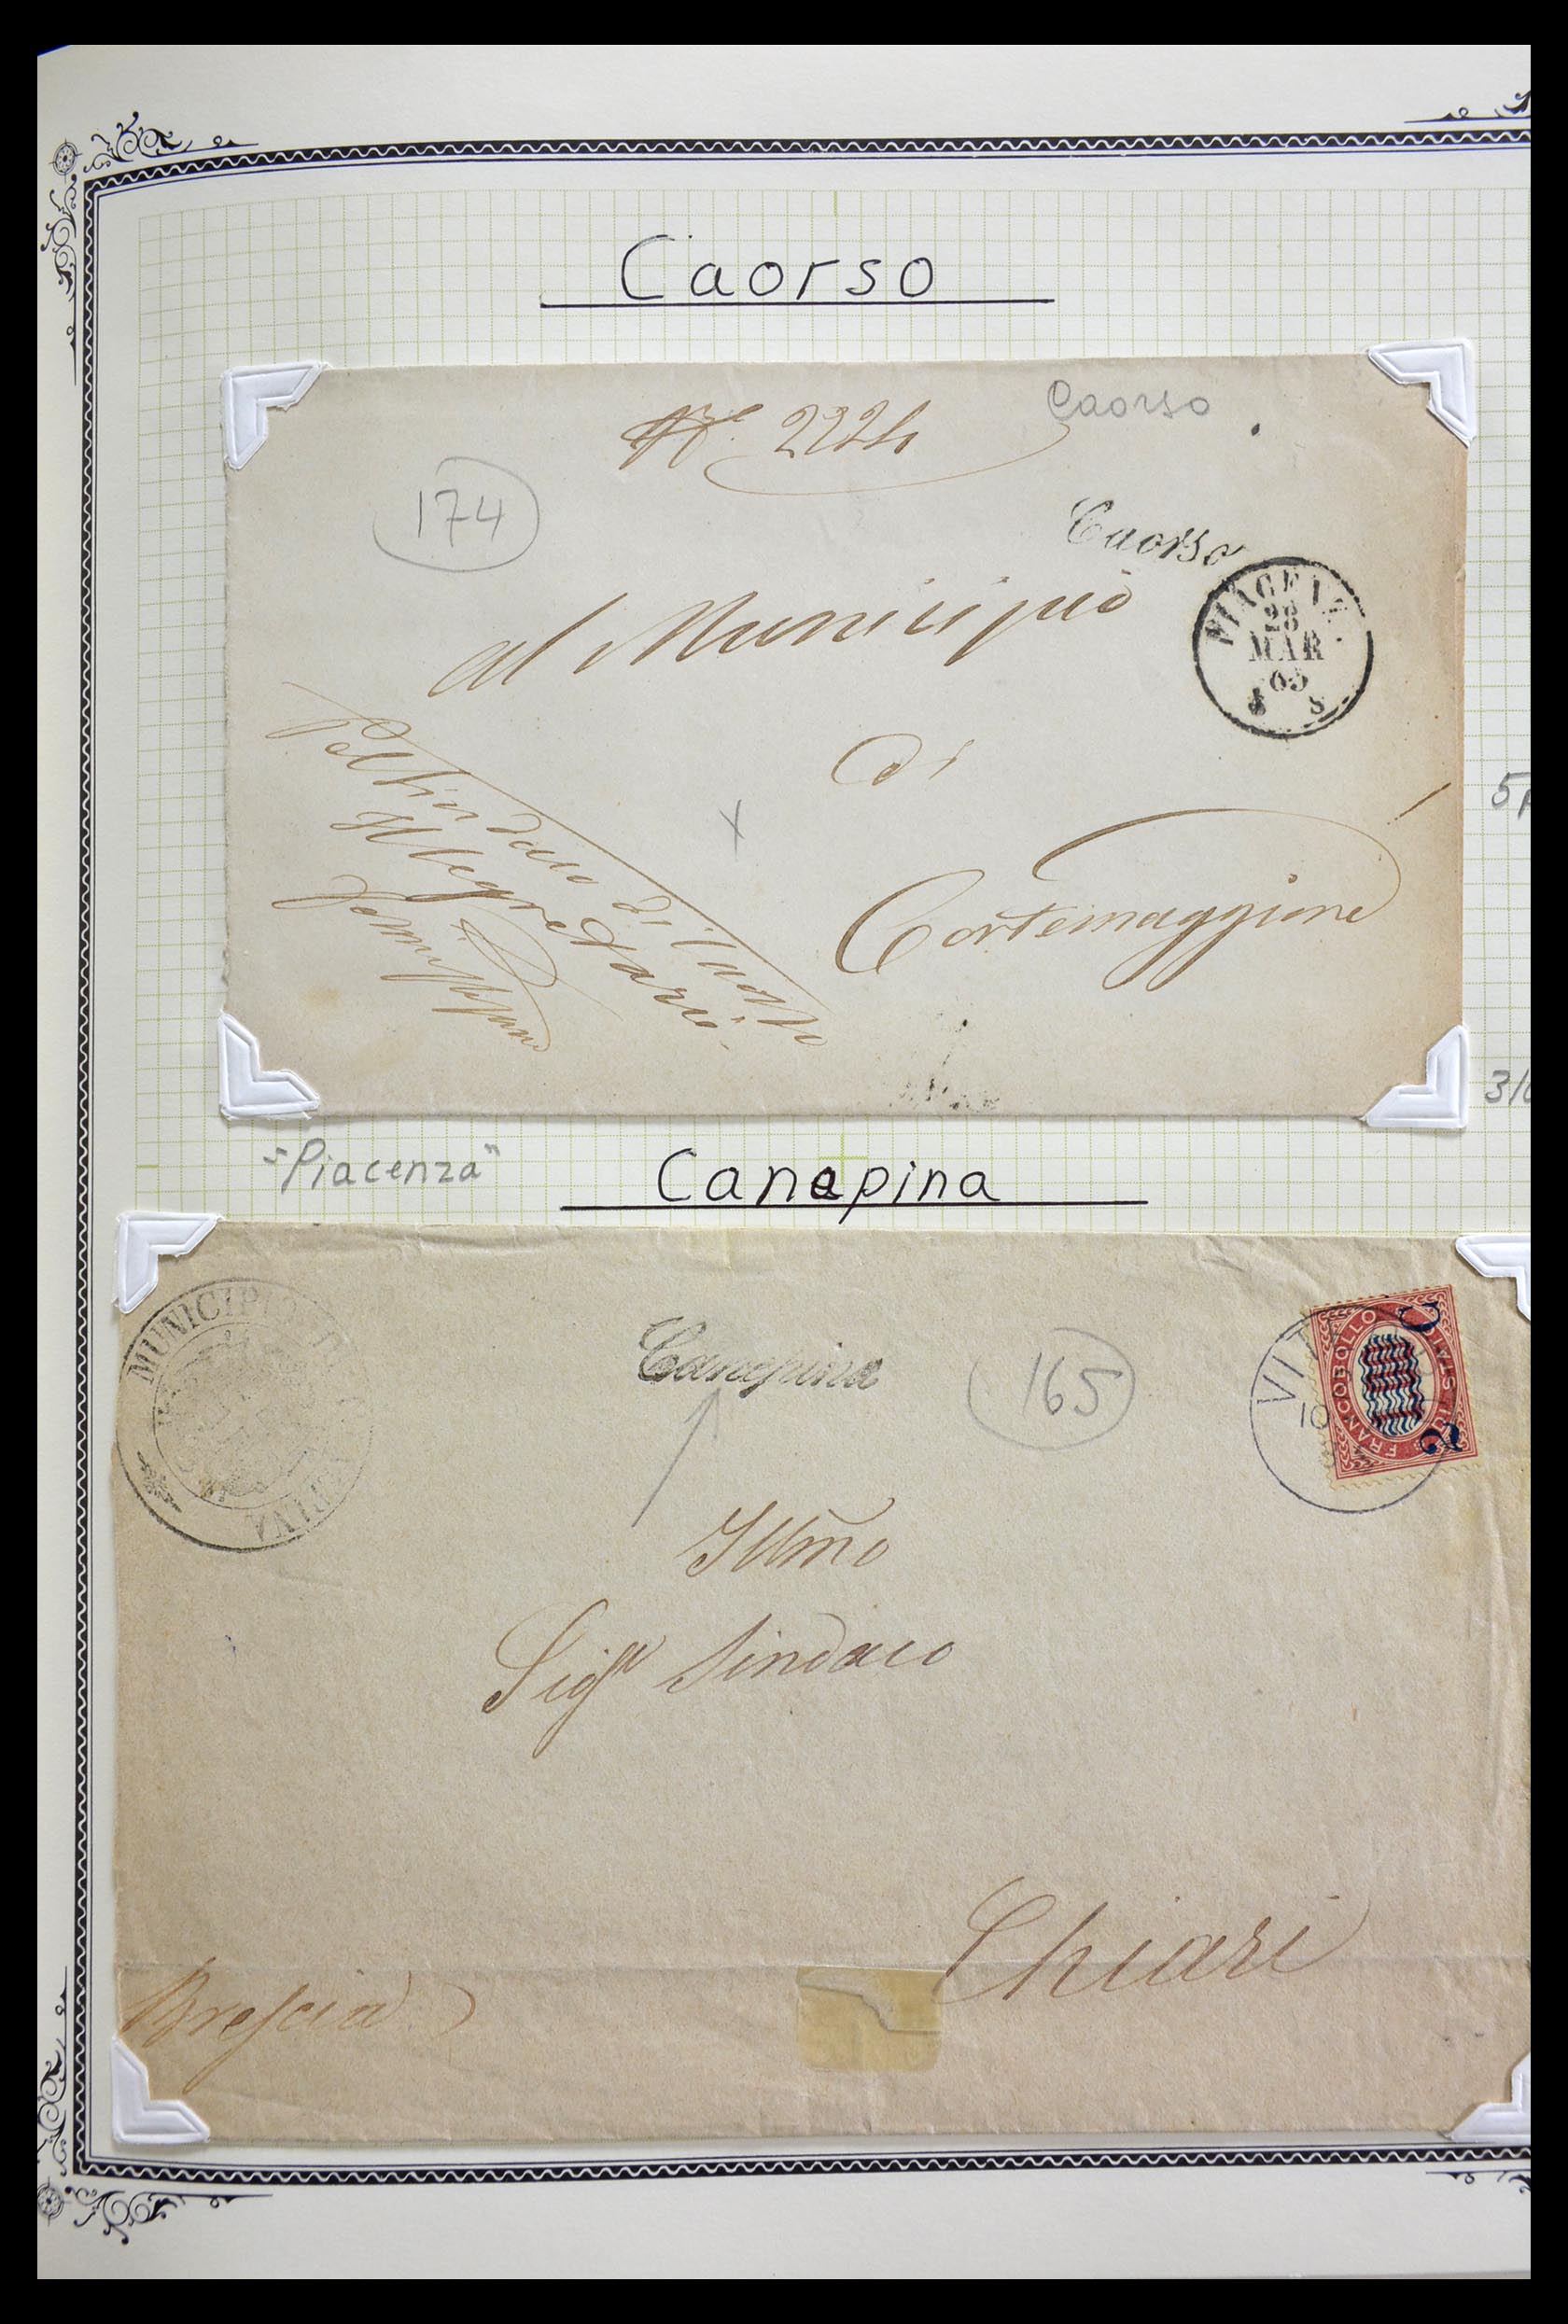 Caorso
Caorso
N.º 2224
174
Caorso
PIACENZ.
28
MAR
65
8 S
al Municipio
di
Cortemaggiore
Pel Sindaco di Caorso
Il Segretario
5
3/
"Piacenza"
Canepina
MUNICIPIO DI
EPINA
Canepina
165
VIT
10
FRANCOBOLLO
2 C
Illmo
Sigr Sindaco
Chiari
Brescia